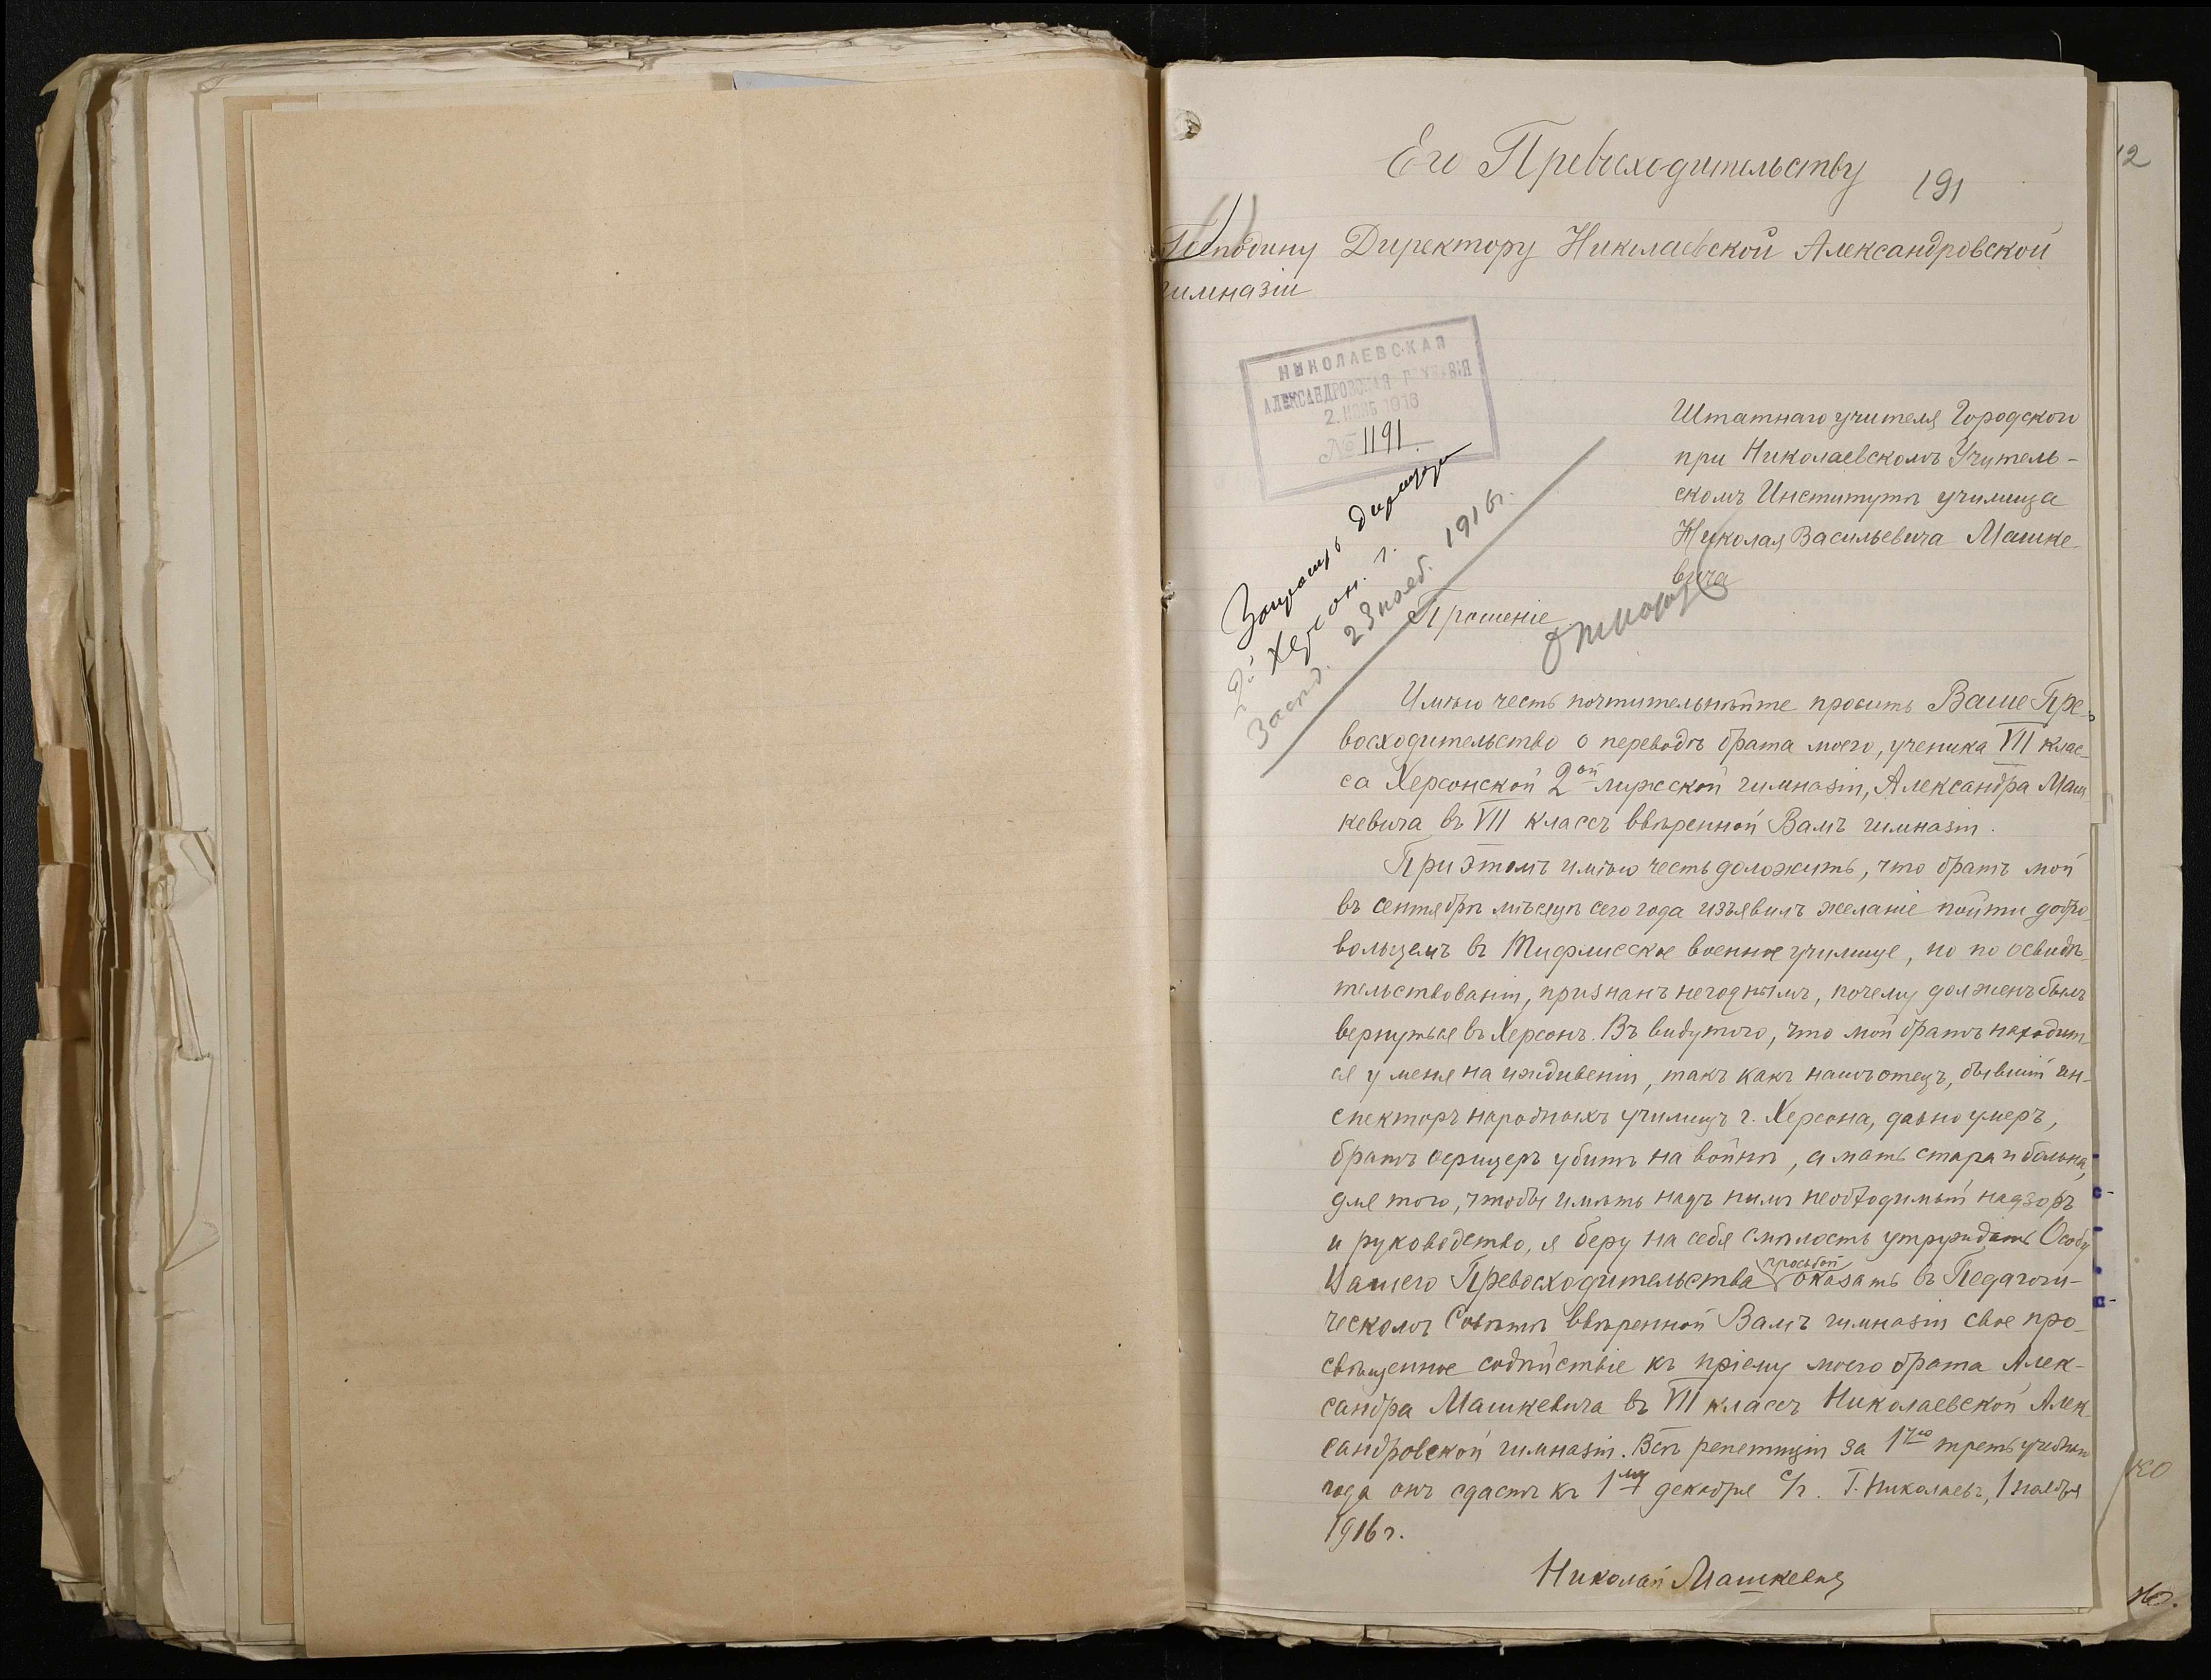 Его Превосходительству
191
12
Господину Директору Николаевской Александровской
гимназіи
НИКОЛАЕВСКАЯ
АЛЕКСАНДРОВСКАЯ ГИМНАЗІЯ
2. НОЯБ 1916
№ 1191
Штатнаго учителя Городского
при Николаевскомъ Учитель-
скомъ Институтѣ училища
Николая Васильевича Машке
вича
2й Херсон. г.
Засѣд. 23 нояб. 1916 г.
Прошеніе
Имѣю честь почтительнѣйше просить Ваше Пре-
восходительство о переводѣ брата моего, ученика VII клас-
са Херсонской 2ой мужской гимназіи, Александра Маш-
кевича въ VII классъ ввѣренной Вамъ гимназіи.
При этомъ имѣю честь доложить, что братъ мой
въ сентябрѣ мѣсяцѣ сего года изъявилъ желаніе пойти добро
вольцемъ въ Тифлисское военное училище, но по освидѣ-
тельствованіи, признанъ негоднымъ, почему долженъ былъ
вернуться въ Херсонъ. Въ виду того, что мой братъ находит-
ся у меня на иждивеніи, такъ какъ нашъ отецъ, бывшій ин-
спекторъ народныхъ училищъ г. Херсона, давно умеръ,
братъ офицеръ убитъ на войнѣ, а мать стара и больна,
для того, чтобы имѣть надъ нимъ необходимый надзоръ
и руководство, я беру на себя смѣлость утруждать Особу
Вашего Превосходительства просьбой оказать въ Педагоги-
ческомъ Совѣтѣ ввѣренной Вамъ гимназіи свое про-
свѣщенное содѣйствіе къ пріему моего брата Алек-
сандра Машкевича въ VII классъ Николаевской Алек-
сандровской гимназіи. Всѣ репетиціи за 1ую треть учебнаго
года онъ сдастъ къ 1му декабря с/г. Г. Николаевъ, 1 ноября
1916 г.
Николай Машкевич